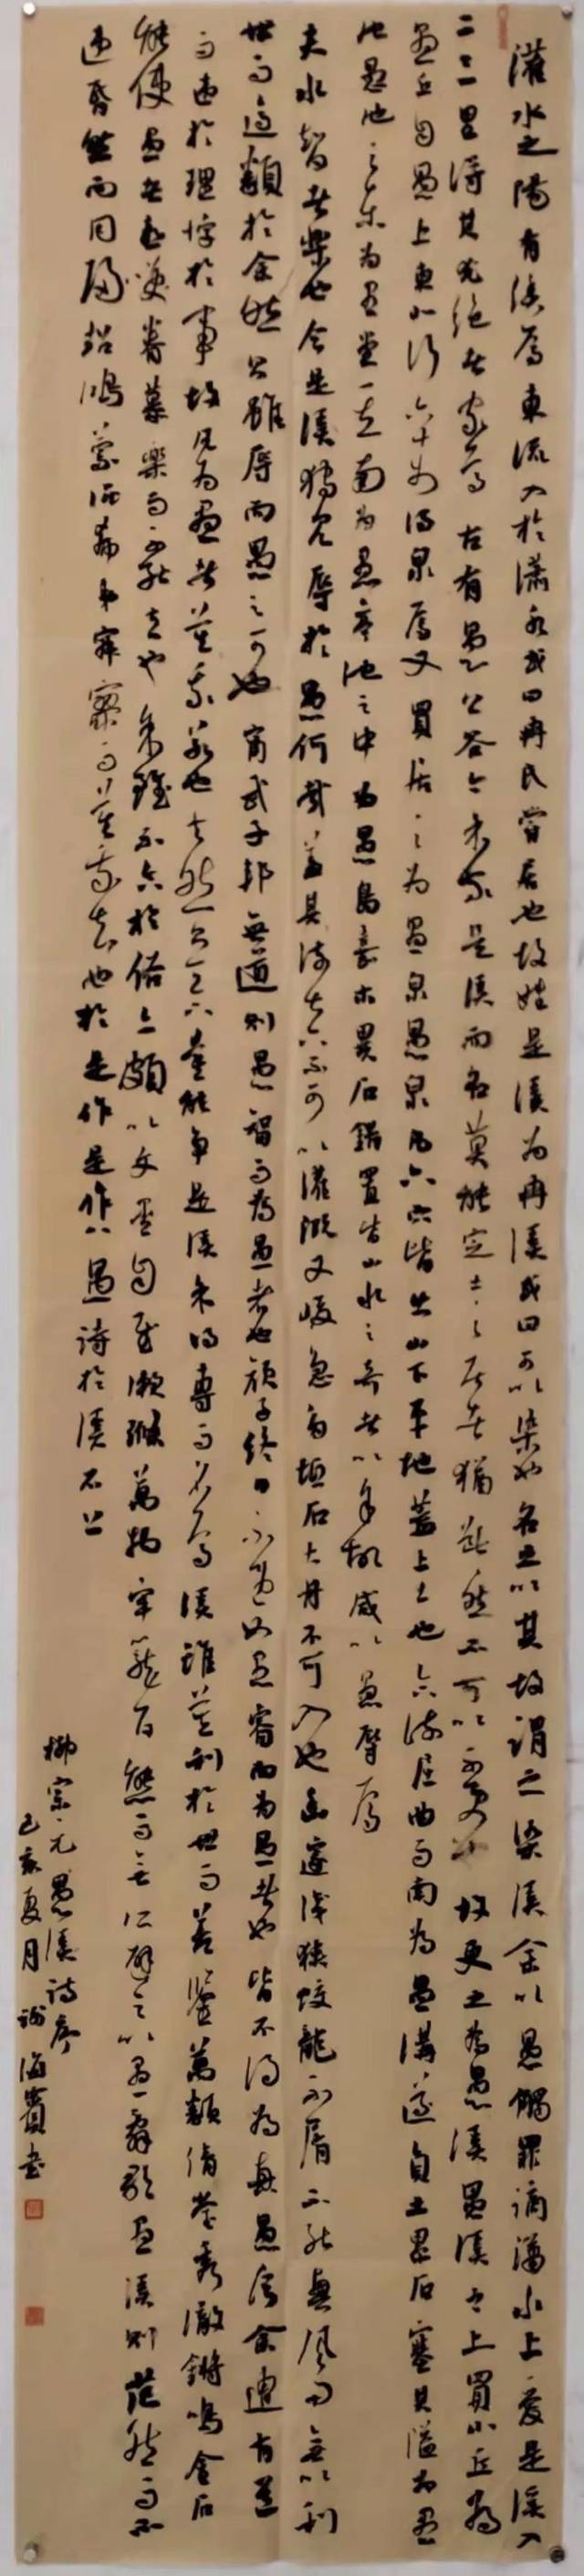 灌水之陽有溪焉東流入於瀟水或曰冉氏嘗居也故姓是溪為冉溪或曰可以染也名之以其故謂之染溪余以愚觸罪謫瀟水上愛是溪入
二三里得其尤絕者家焉古有愚公谷今余家是溪而名莫能定土之居者猶齗然不可以不更也故更之為愚溪愚溪之上買小丘為
愚丘自愚丘東北行六十步得泉焉又買居之為愚泉愚泉凡六穴皆出山下平地蓋上出也合流屈曲而南為愚溝遂負土累石塞其隘為愚
池愚池之東為愚堂其南為愚亭池之中為愚島嘉木異石錯置皆山水之奇者以余故咸以愚辱焉
夫水智者樂也今是溪獨見辱於愚何哉蓋其流甚下不可以灌溉又峻急多坻石大舟不可入也幽邃淺狹蛟龍不屑不能興風雨無以利
世而適類於余然則雖辱而愚之可也甯武子邦無道則愚智而為愚者也顏子終日不違如愚睿而為愚者也皆不得為真愚今余遭有道
而違於理悖於事故凡為愚者莫我若也夫然則天下莫能爭是溪余得專而名焉溪雖莫利於世而善鑒萬類清瑩秀澈鏘鳴金石
能使愚者喜笑眷慕樂而不能去也余雖不合於俗亦頗以文墨自慰漱滌萬物牢籠百態而無所避之以愚辭歌愚溪則茫然而不
違昏然而同歸超鴻蒙混希夷寂寥而莫我知也於是作是作八愚詩於溪石上
柳宗元愚溪詩序
己亥夏月謝海賓書